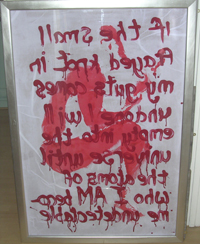 If the small
frayed knot in
my guts comes
undone I will
empty into the
universe until
the atoms of
who I AM beco-
me undetectable